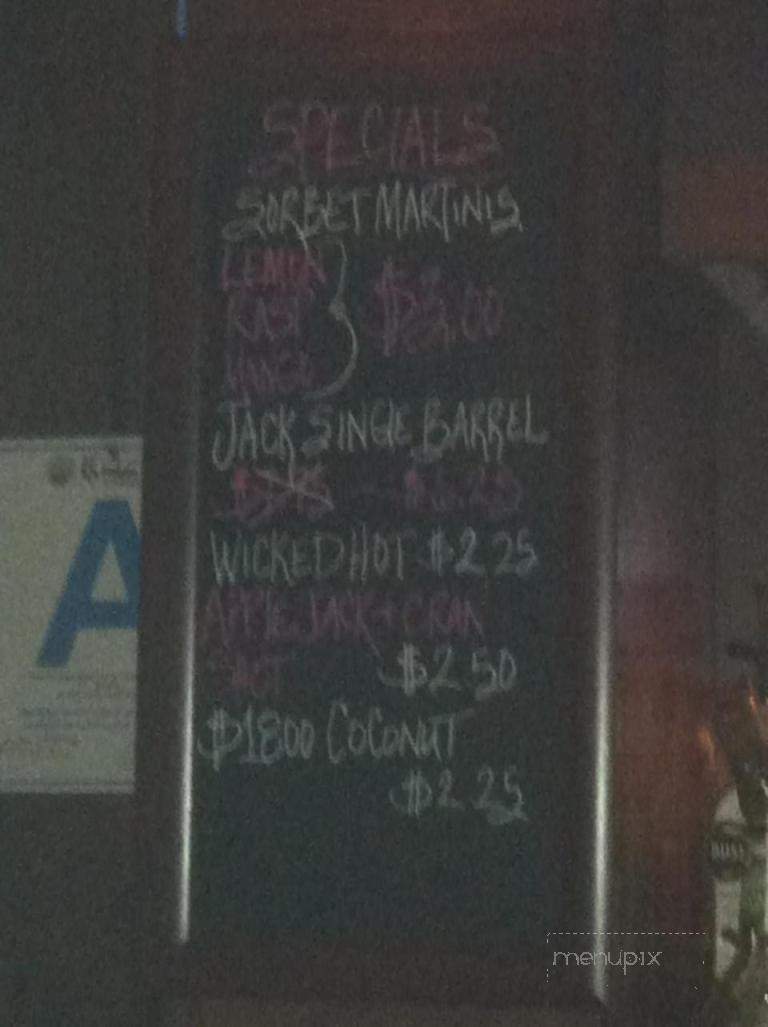 SPECIALS
SORBET MARTINIS
LEMON
RASP
MANGO
$5.00
JACK SINGLE BARREL
WICKED HOT $2.25
APPLE JACK + CRAN
SHOT $2.50
$1800 COCONUT
$2.25
A
menupix